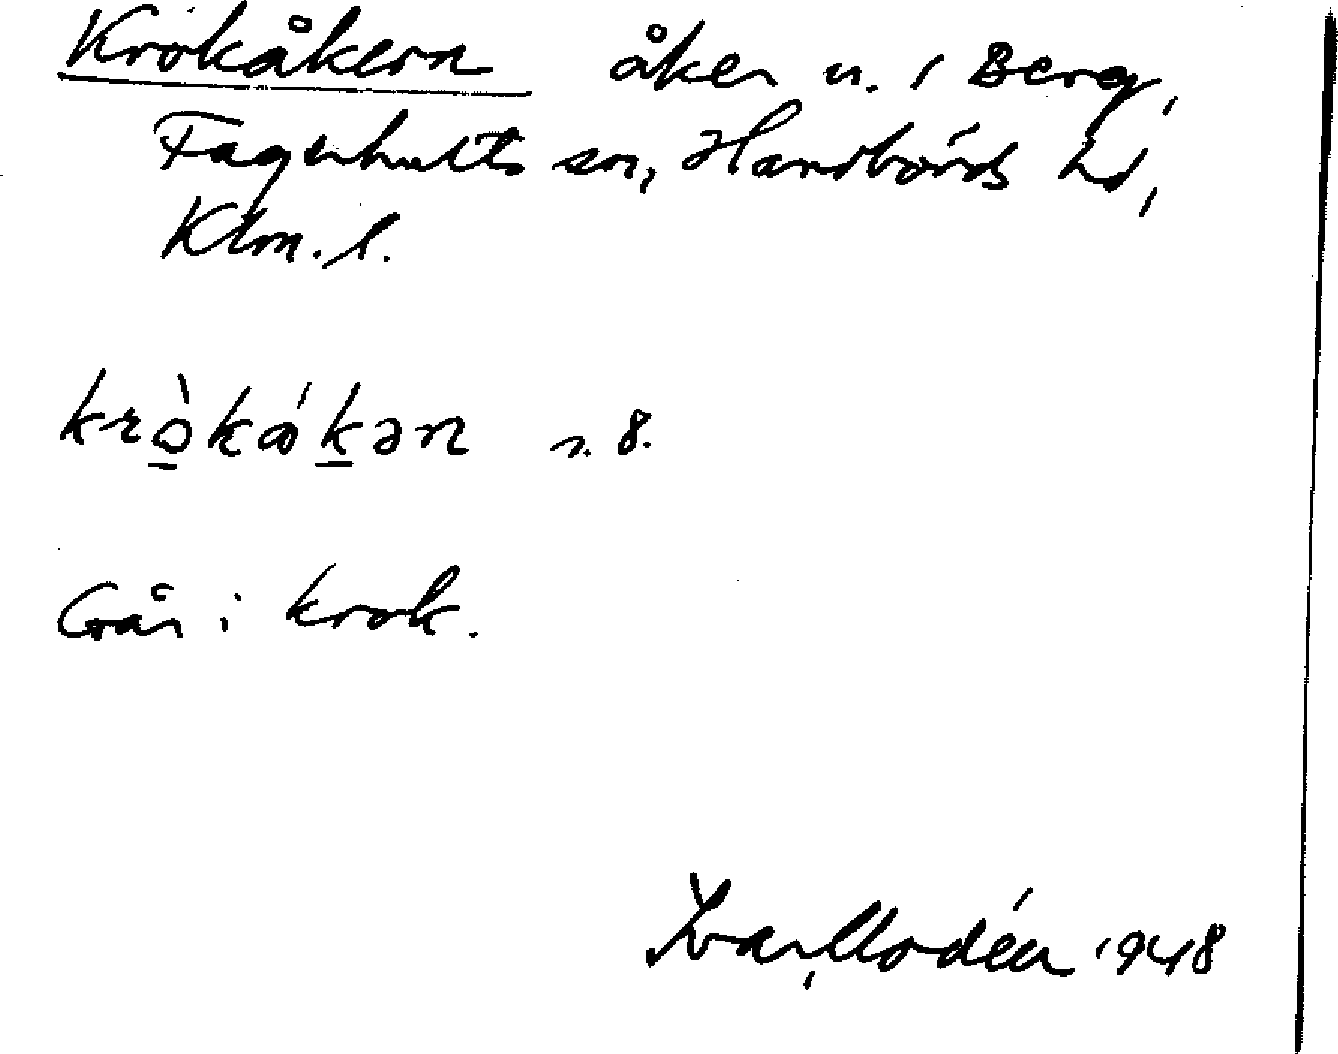 Krokåkern åker n. i Berg,
Fagerhults sn, Handbörds hd,
Klm. l.
krò̠ká̊k̠ən s. 8.
Går i krok.
Ivar Modéer 1948